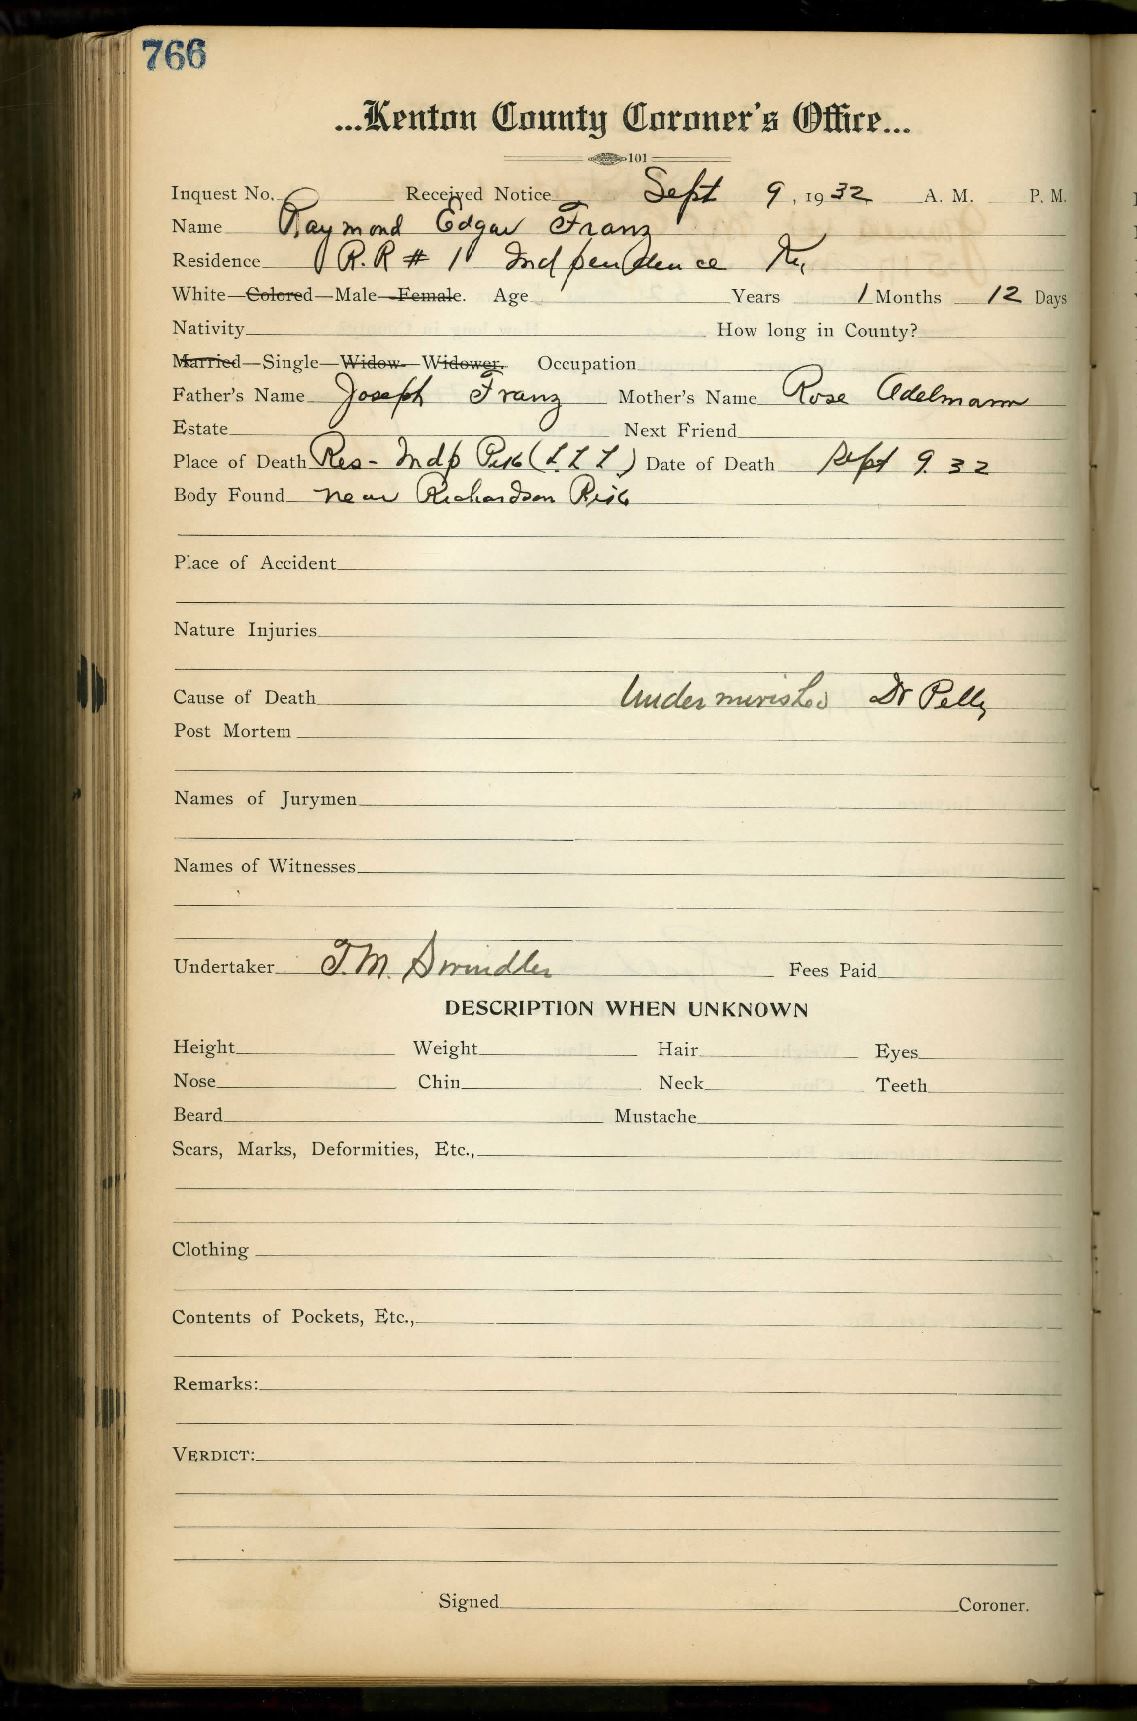 766
...Kenton County Coroner's Office...
101
Inquest No. Received Notice Sept 9, 1932 A. M. P. M.
Name Raymond Edgar Franz
Residence R.R # 1 Independence Ky
White—Colored—Male—Female. Age Years 1 Months 12 Days
Nativity How long in County?
Married—Single—Widow—Widower. Occupation
Father's Name Joseph Franz Mother's Name Rose Adelmann
Estate Next Friend
Place of Death Res - Indp Pike (L L L) Date of Death Sept 9. 32
Body Found near Richardson Pike
Place of Accident
Nature Injuries
Cause of Death Undernurished Dr Pelly
Post Mortem
Names of Jurymen
Names of Witnesses
Undertaker T.M. Swindler Fees Paid
DESCRIPTION WHEN UNKNOWN
Height Weight Hair Eyes
Nose Chin Neck Teeth
Beard Mustache
Scars, Marks, Deformities, Etc.,
Clothing
Contents of Pockets, Etc.,
Remarks:
VERDICT:
Signed Coroner.